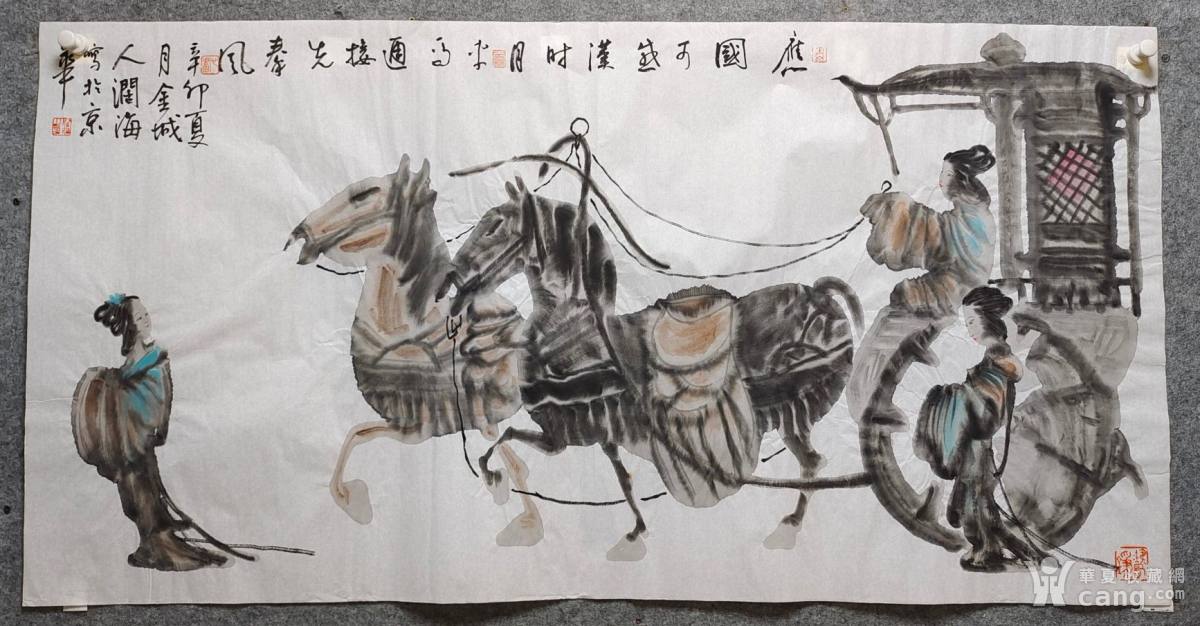 應國可盛漢时月马接先秦風
辛卯夏
月金城
人潤海
寫於京
華
華夏收藏網
cang.com